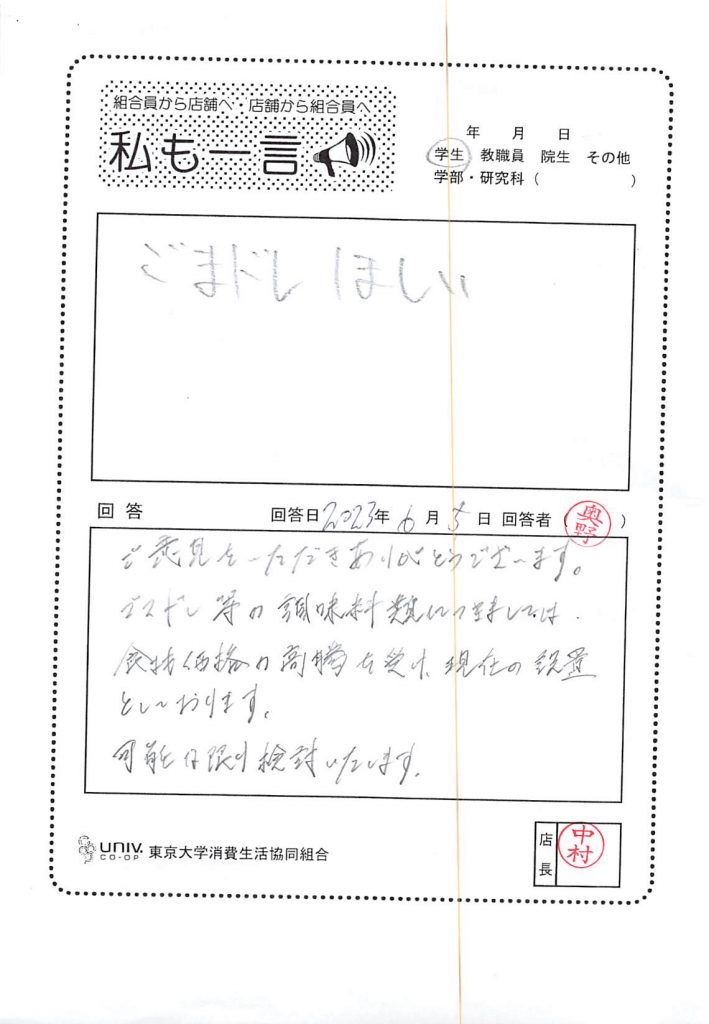 組合員から店舗へ・店舗から組合員へ
私も一言
年 月 日
学生 教職員 院生 その他
学部・研究科( )
ごまドレ ほしい
回答 回答日2023年6月5日 回答者(奥野)
ご意見をいただきありがとうございます。
ゴマドレ等の調味料類につきましては
食材価格の高騰を受け、現在の設置
としております。
可能な限り検討いたします。
UNIV. CO-OP 東京大学消費生活協同組合
店長 中村